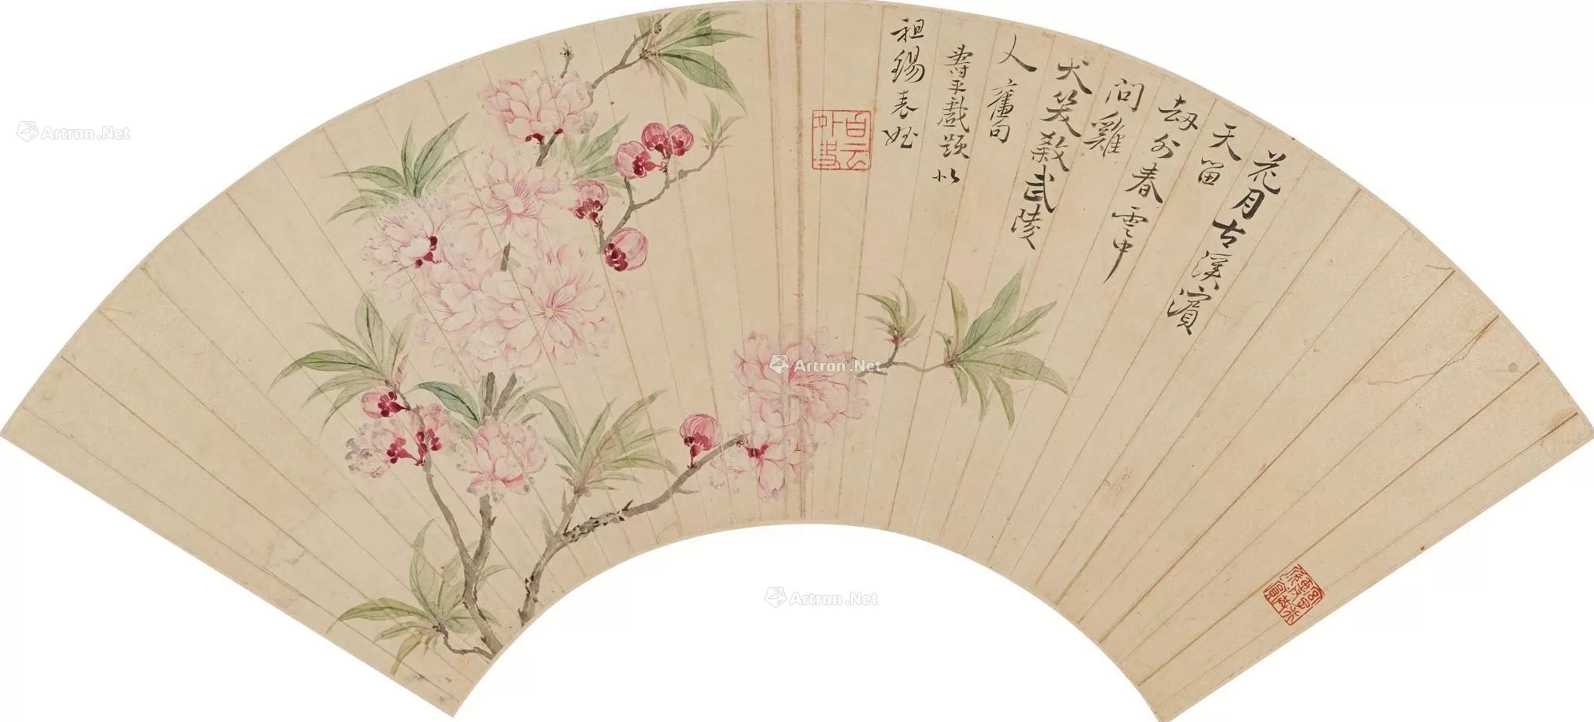 花月古溪濱
天留
劫外春雲中
問雞
犬笑殺武陵
人 舊句
壽平戲題 以
祖錫表姪
白雲外史
Artron.Net
Artron.Net
Artron.Net